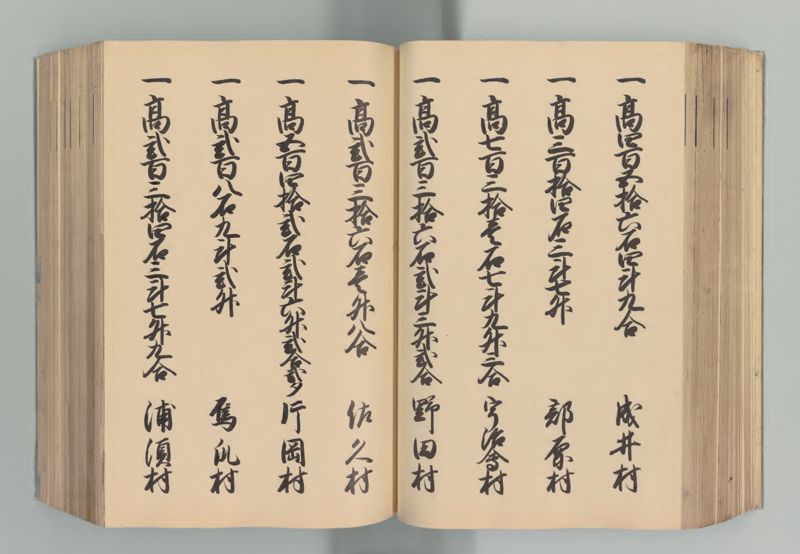 一高四百五拾六石四斗九合 成井村
一高三百拾四石三斗七升 部原村
一高七百三拾壱石七斗九升三合 宇治会村
一高弐百三拾六石弐斗三升弐合 野田村
一高弐百三拾六石壱升八合 佐久村
一高五百四拾弐石弐斗六升弐合弐夕 片岡村
一高弐百八石九斗弐升 瓦村
一高弐百三拾四石三斗七升九合 浦須村